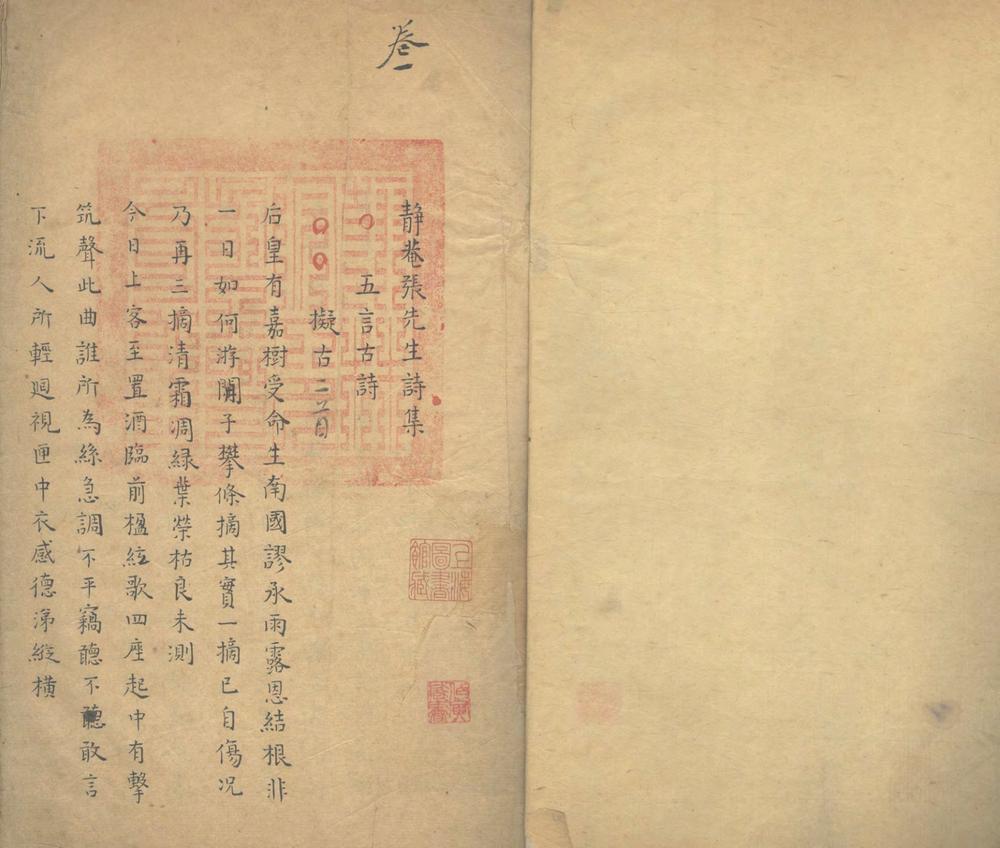 卷一
静菴張先生詩集
五言古詩
擬古二首
后皇有嘉樹受命生南國謬承雨露恩結根非
一日如何游閒子攀條摘其實一摘已自傷况
乃再三摘清霜凋緑葉榮枯良未測
今日上客至置酒臨前楹絃歌四座起中有擊
筑聲此曲誰所為絲急調不平竊聽不聽敢言
下流人所輕迴視匣中衣感德涕縱横
上海圖書館藏